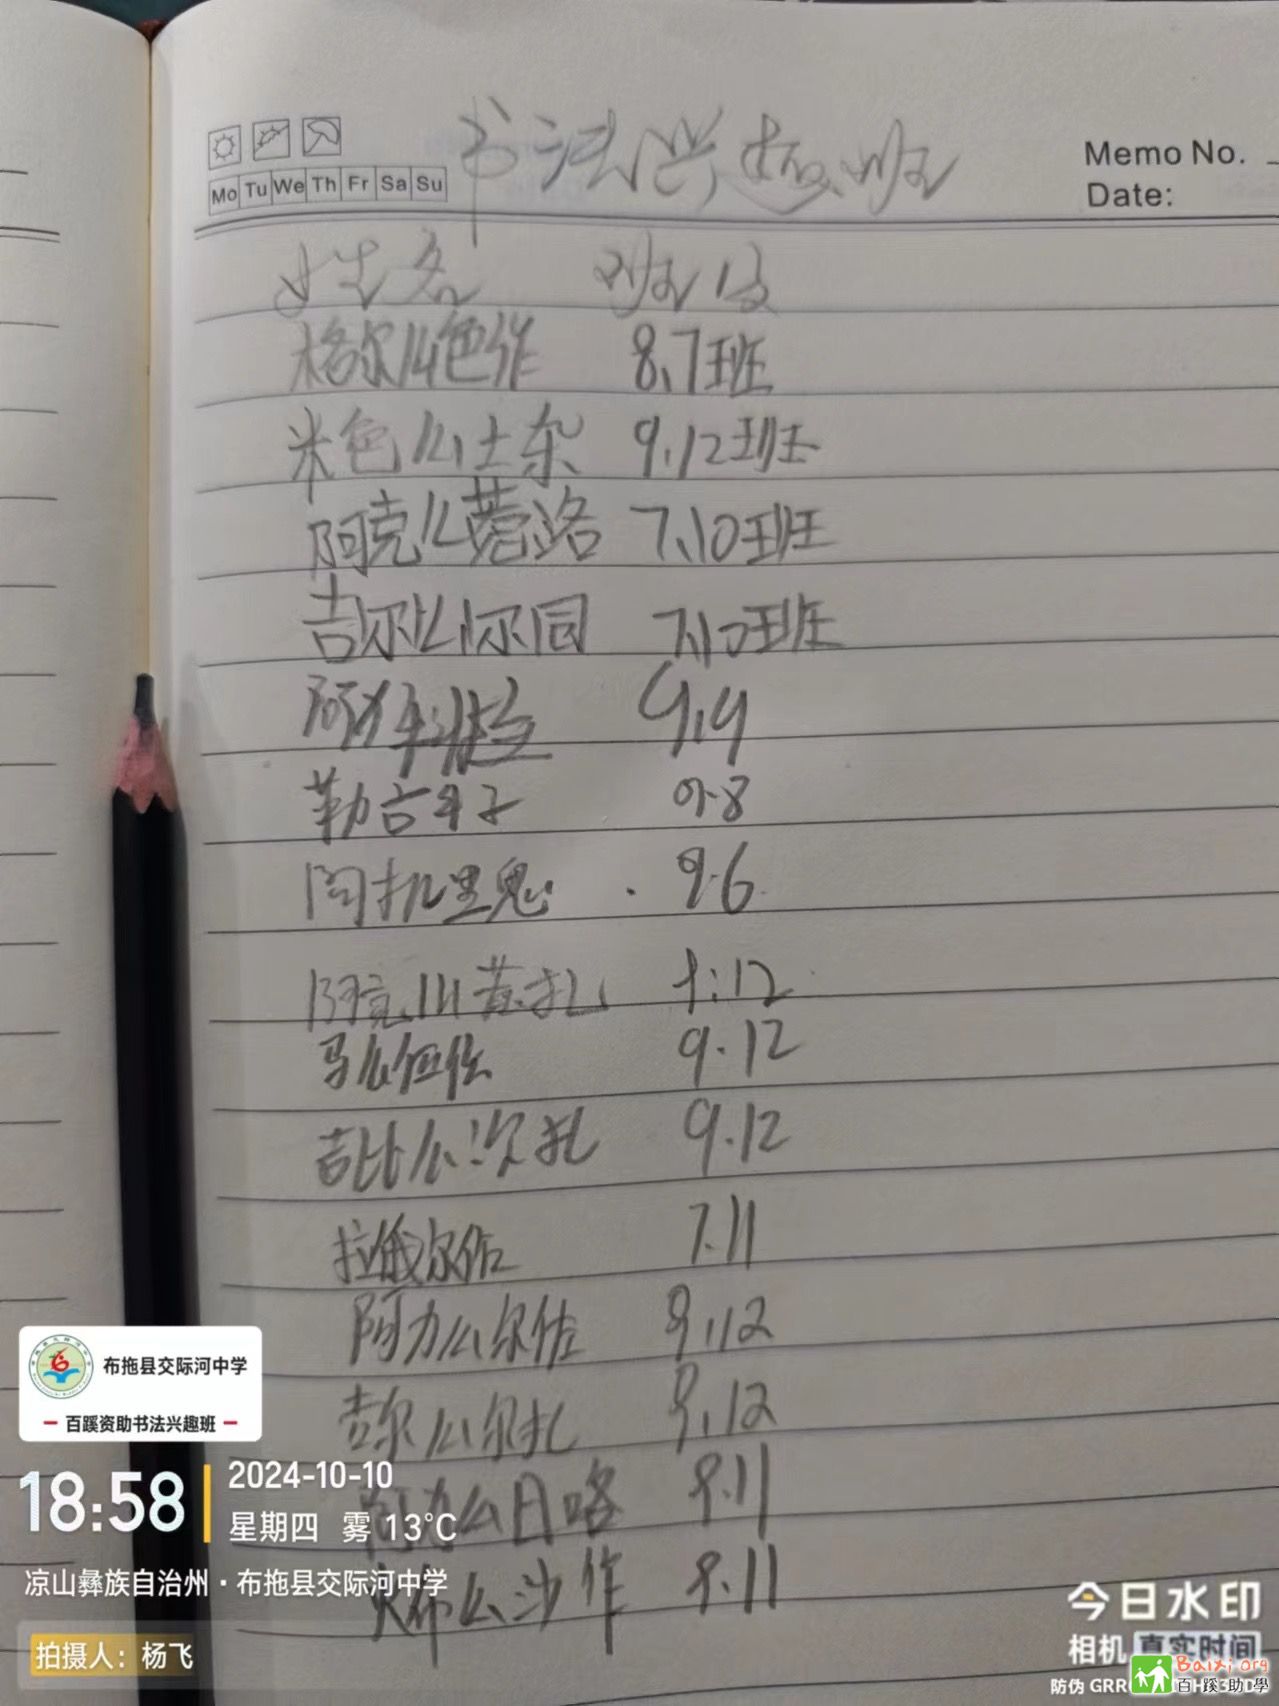 书法兴趣班
Memo No.
Date:
Mo Tu We Th Fr Sa Su
姓名 班级
格尔么色作 8.7班
米色么土杂 9.12班
阿克么 洛 7.10班
吉尔么尔同 7.10班
9.9
勒古 子 9.8
阿扎里鬼 9.6
阿克 扎 :12
马么 9.12
吉比么次扎 9.12
拉俄尔佑 7.11
阿力么尔佐 9.12
吉尔么尔扎 9.12
阿力么日咯 9.11
么沙作 9.11
布拖县交际河中学
百蹊资助书法兴趣班
18:58
2024-10-10
星期四 雾 13°C
凉山彝族自治州·布拖县交际河中学
拍摄人：杨飞
今日水印
相机 真实时间
防伪 GRR
Baixi.org
百蹊助學